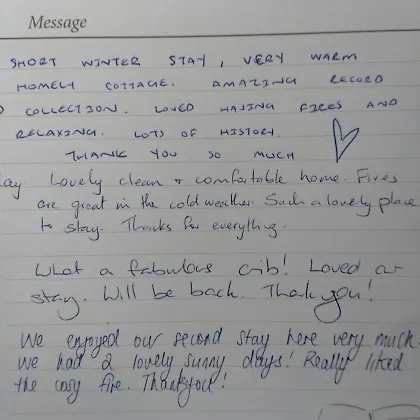 Message
SHORT WINTER STAY, VERY WARM
HOMELY COTTAGE. AMAZING RECORD
COLLECTION. LOVED HAVING FIRES AND
RELAXING. LOTS OF HISTORY.
THANK YOU SO MUCH
Lovely clean + comfortable home. Fires
are great in the cold weather. Such a lovely place
to stay. Thanks for everything.
What a fabulous crib! Loved our
stay. Will be back. Thank you!
We enjoyed our second stay here very much.
We had 2 lovely sunny days! Really liked
the cosy fire. Thankyou!